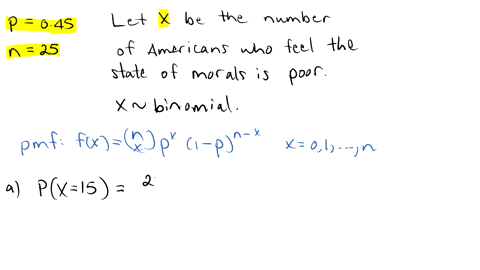 p = 0.45
n = 25
Let X be the number
of Americans who feel the
state of morals is poor.
X ~ binomial.
pmf: f(x) = (n x) p^x (1-p)^{n-x} x = 0, 1, ..., n
a) P(X=15) = 2